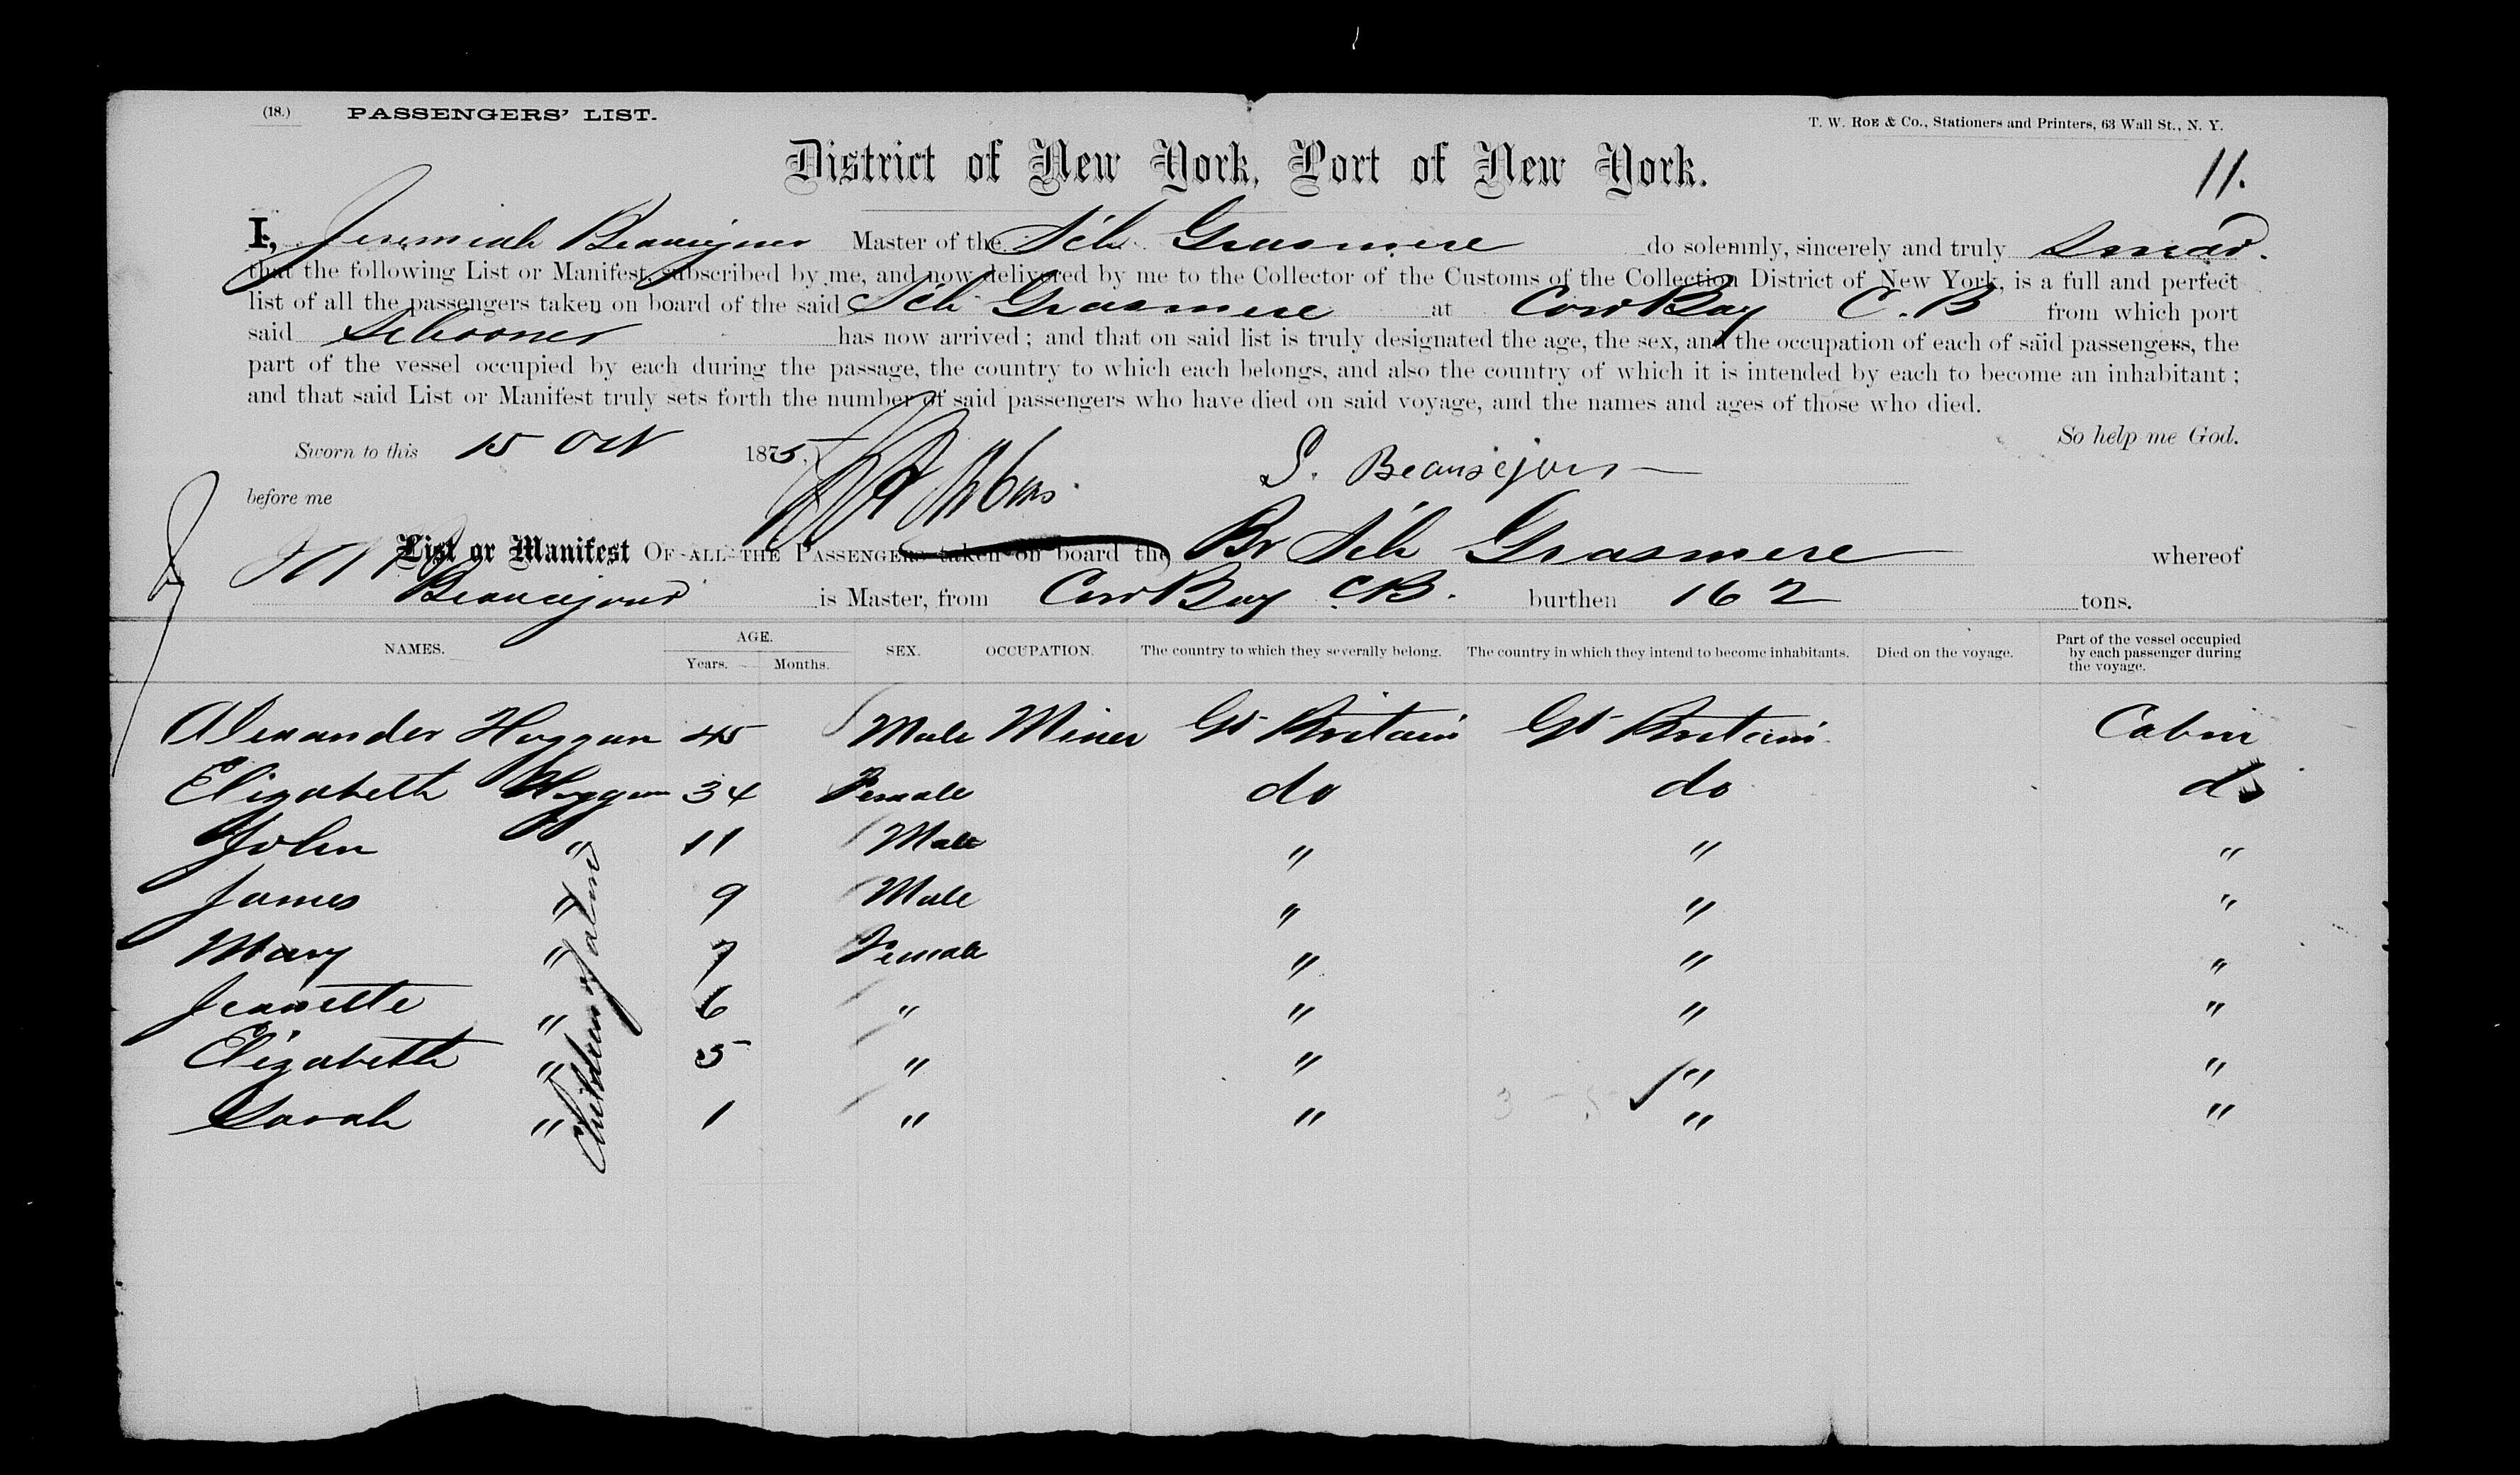 (18.) PASSENGERS' LIST. T. W. ROE & Co., Stationers and Printers, 63 Wall St., N. Y.
District of New York, Port of New York. 11.
I, Jeremiah Beausejour Master of the Sch. Grasmere do solemnly, sincerely and truly swear.
that the following List or Manifest, subscribed by me, and now delivered by me to the Collector of the Customs of the Collection District of New York, is a full and perfect
list of all the passengers taken on board of the said Sch Grasmere at Cow Bay C. B from which port
said Schooner has now arrived; and that on said list is truly designated the age, the sex, and the occupation of each of said passengers, the
part of the vessel occupied by each during the passage, the country to which each belongs, and also the country of which it is intended by each to become an inhabitant;
and that said List or Manifest truly sets forth the number of said passengers who have died on said voyage, and the names and ages of those who died.
So help me God.
Sworn to this 15 Oct 1875, J. Beausejour
before me
List or Manifest OF ALL THE PASSENGERS taken on board the Br Sch Grasmere whereof
Beausejour is Master, from Cow Bay CB. burthen 162 tons.
NAMES. AGE. Years. Months. SEX. OCCUPATION. The country to which they severally belong. The country in which they intend to become inhabitants. Died on the voyage. Part of the vessel occupied by each passenger during the voyage.
Alexander Hoggan 45 Male Miner Gt Britain Gt Britain Cabin
Elizabeth Hoggan 34 Female do do do
John " 11 Male " " "
James " 9 Male " " "
Mary " 7 Female " " "
Jeanette " 6 " " " "
Elizabeth " 5 " " " "
Sarah " 1 " " " "
Children of above